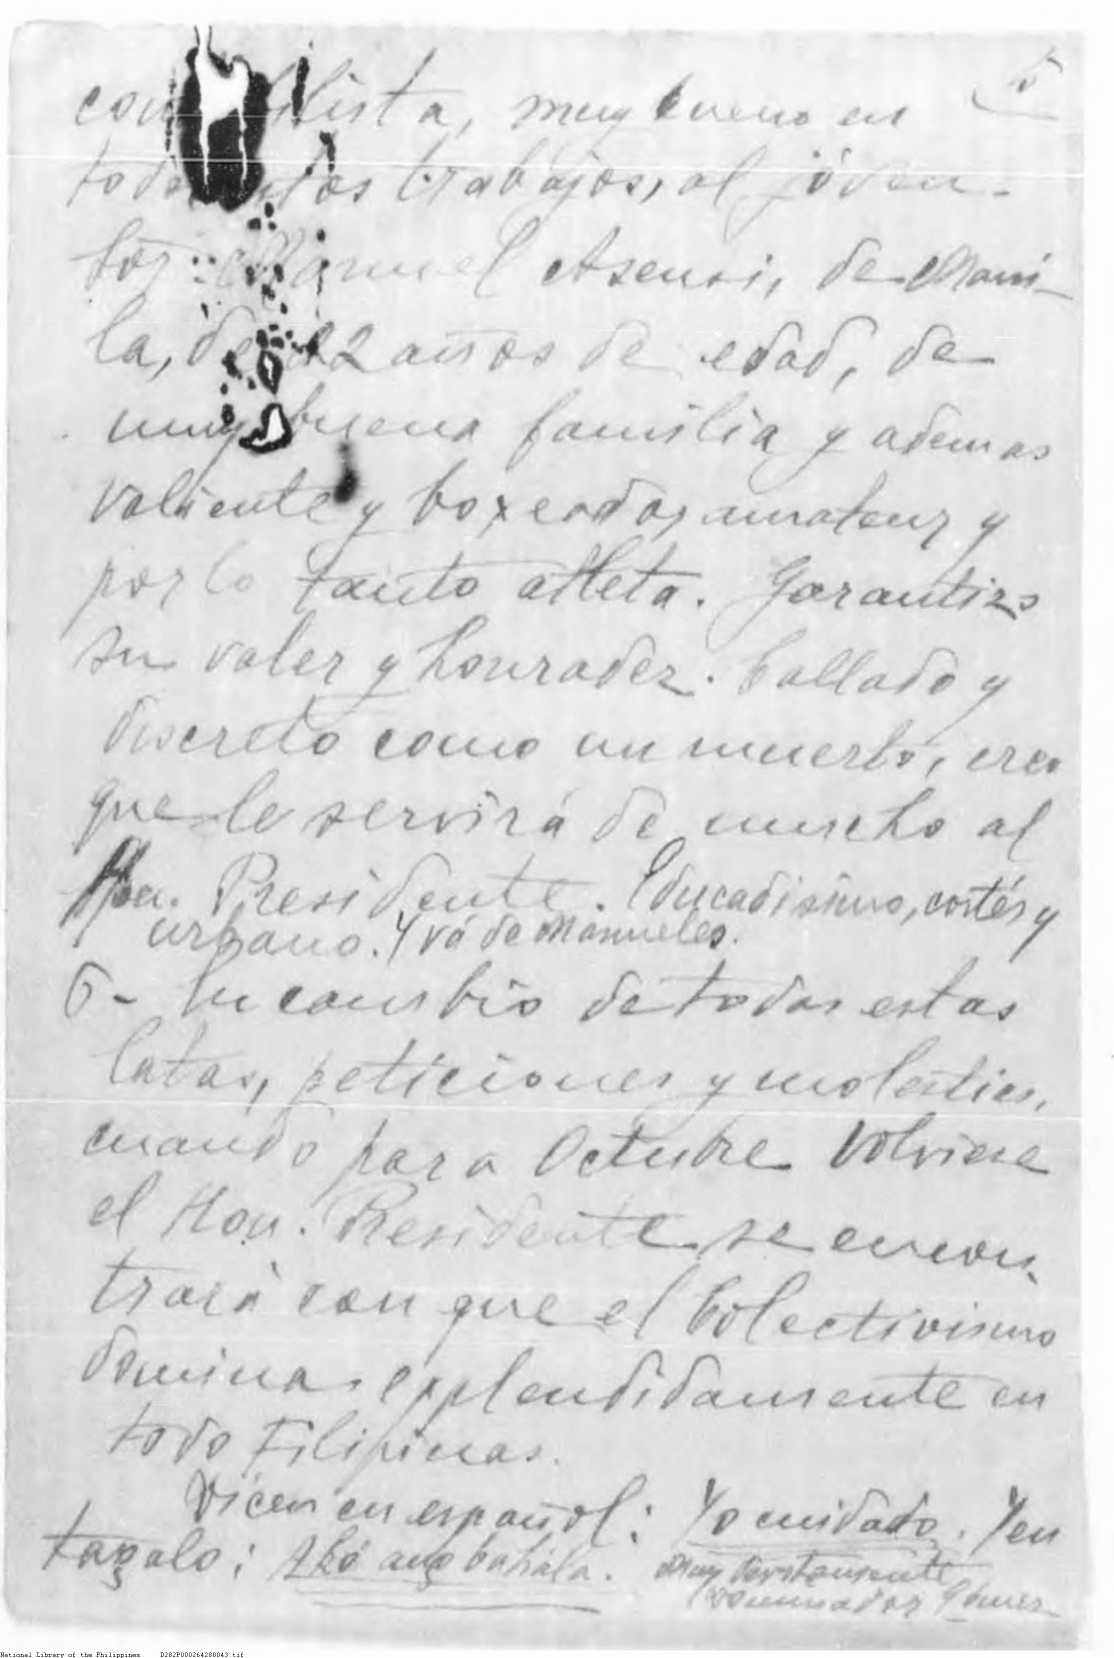 5
muy bueno en
trabajos, al jóven-
Manuel Asensi, de Mani-
la, de 22 años de edad, de
muy buena familia y ademas
valiente y boxeador, amateur y
por lo tanto atleta. Garantizo
su valer y honradez. Callado y
discreto como un muerto, creo
que le servirá de mucho al
Hon. Presidente. Educadisimo, cortés y
urbano. Y vá de Manueles.
6- En cambio de todas estas
latas, peticiones y molestias,
cuando para Octubre volviese
el Hon. Presidente se encon-
trará con que el Colectivismo
domina esplendidamente en
todo Filipinas.
Dicen en español: Yo cuidado. Y en
tagalo: Akó ang bahala. Muy
Gómez